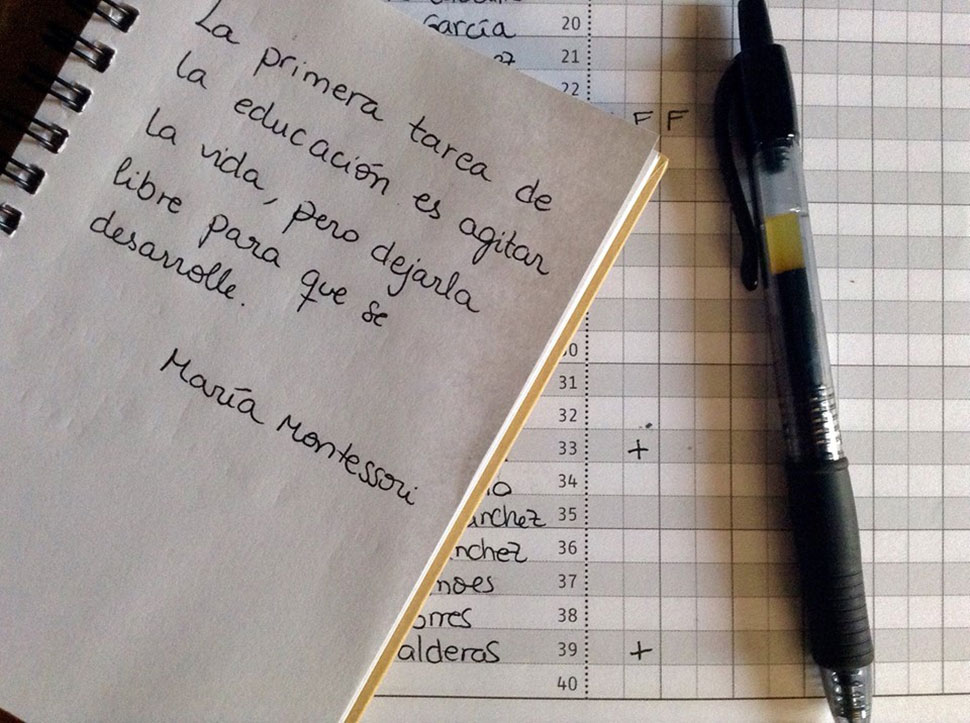 La primera tarea de
la educación es agitar
la vida, pero dejarla
libre para que se
desarrolle.
María Montessori
García 20
21
22
F F
31
32
33 +
34
35
36
37
38
alderas 39 +
40